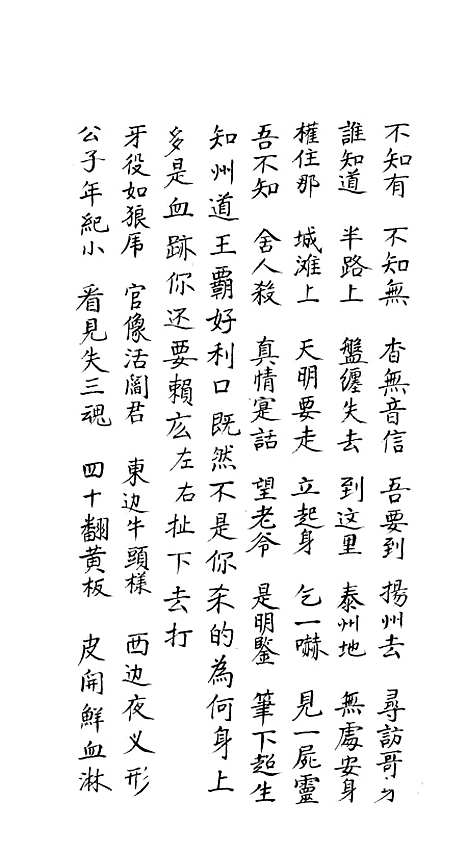 不知有 不知無 杳無音信 吾要到 揚州去 尋訪哥
誰知道 半路上 盤纏失去 到这里 泰州地 無處安身
權住那 城滩上 天明要走 立起身 乞一嚇 見一屍靈
吾不知 舍人殺 真情寔話 望老爷 是明鑒 筆下超生
知州道王霸好利口既然不是你夲的為何身上
多是血跡你还要賴庅左右扯下去打
牙役如狼乕 官像活閻君 東边牛頭様 西边夜义形
公子年紀小 看見失三魂 四十翻黄板 皮開鮮血淋